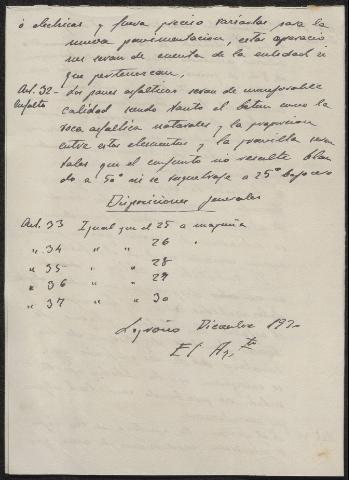 ó electricas y fuera preciso variarlas para la
nueva pavimentacion, estas operacio
nes seran de cuenta de la entidad á
que pertenezcan,
Art. 32 - Los panes asfalticos seran de inmejorable
Asfalto calidad siendo tanto el betun como la
roca asfaltica naturales y la proporcion
entre estos elementos y la gravilla seran
tales que el conjunto no resulte blan
do a 50° ni se resquebraje a 25° bajo cero
Disposiciones generales
Art. 33 Igual que el 25 a maquina
" 34 " " 26 "
" 35 - " " 28
" 36 " " 29
" 37 " " 30
Logroño Diciembre 19
El Arq.to